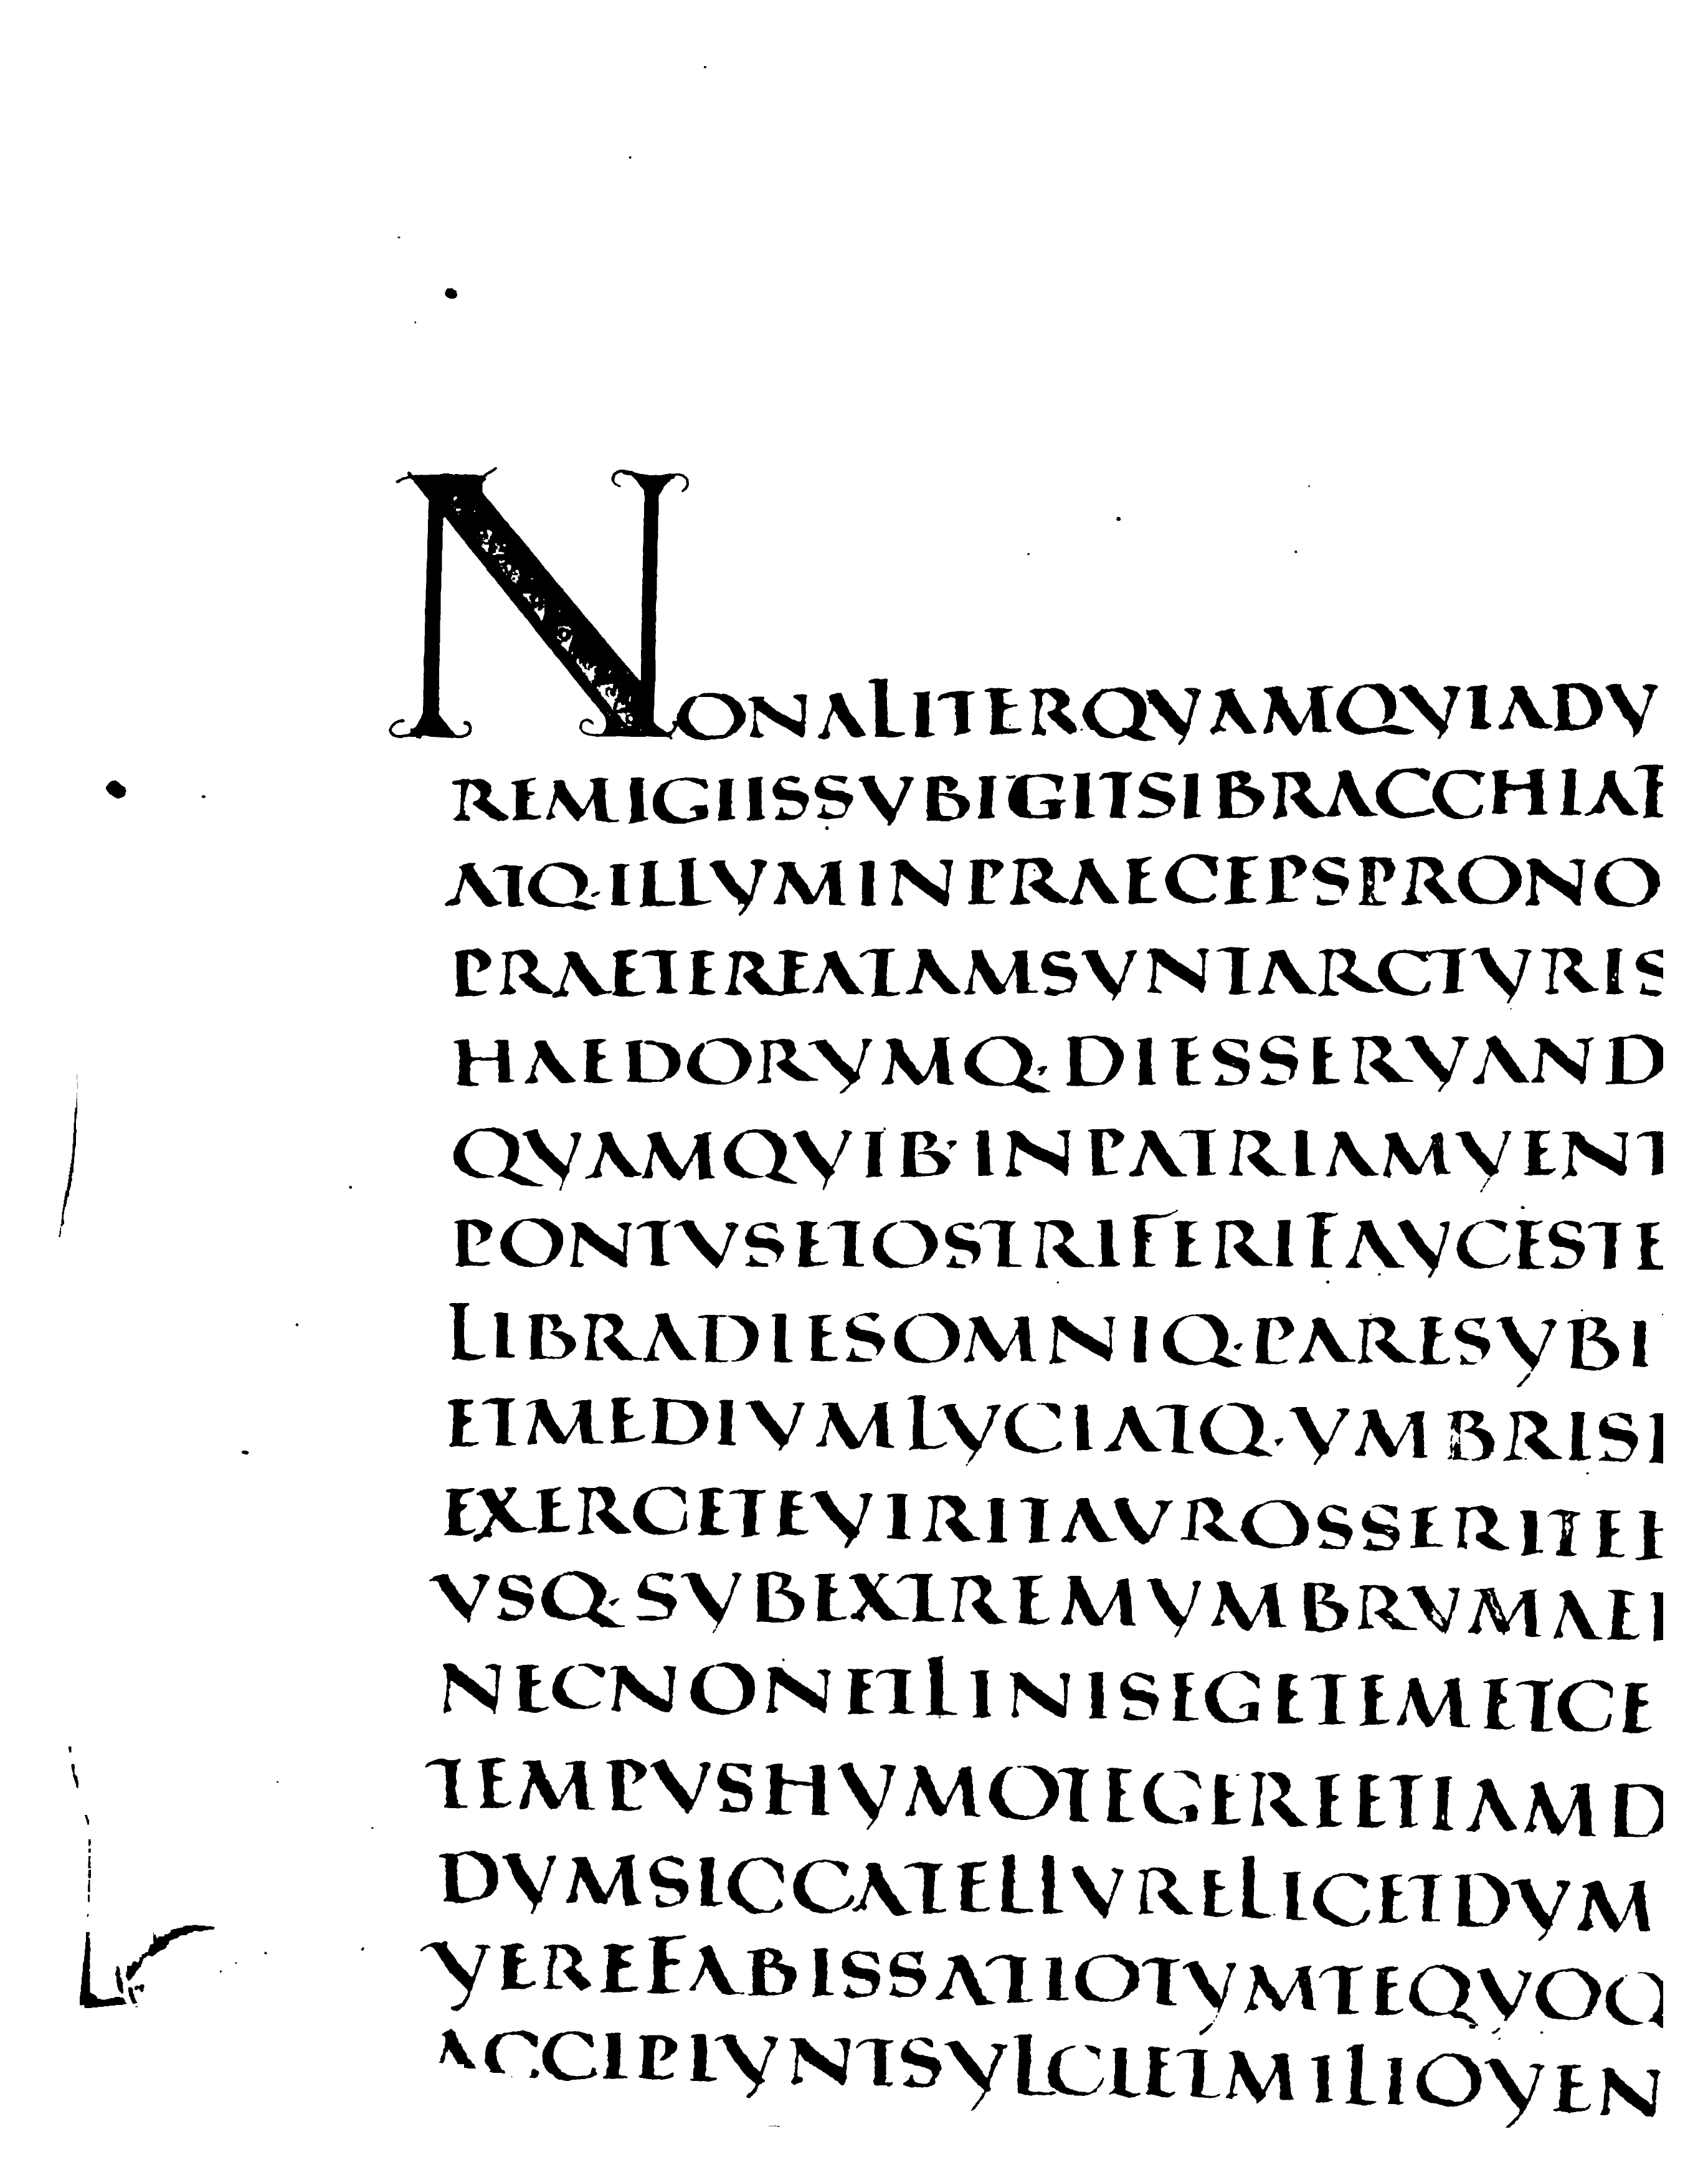 NONALITERQVAMQVIADV
REMIGIISSVBIGITSIBRACCHIAE
ATQ·ILLVMINPRAECEPSPRONO
PRAETEREATAMSVNTARCTVRIS
HAEDORVMQ·DIESSERVAND
QVAMQVIB·INPATRIAMVENT
PONTVSETOSTRIFERIFAVCESTE
LIBRADIESOMNIQ·PARESVBI
ETMEDIVMLVCIATQ·VMBRISI
EXERCETEVIRITAVROSSERITEH
VSQ·SVBEXTREMVMBRVMAEI
NECNONETLINISEGETEMETCE
TEMPVSHVMOTEGEREETIAMD
DVMSICCATELLVRELICETDVM
VEREFABISSATIOTVMTEQVOQ
ACCIPIVNTSVLCIETMILIOVEN